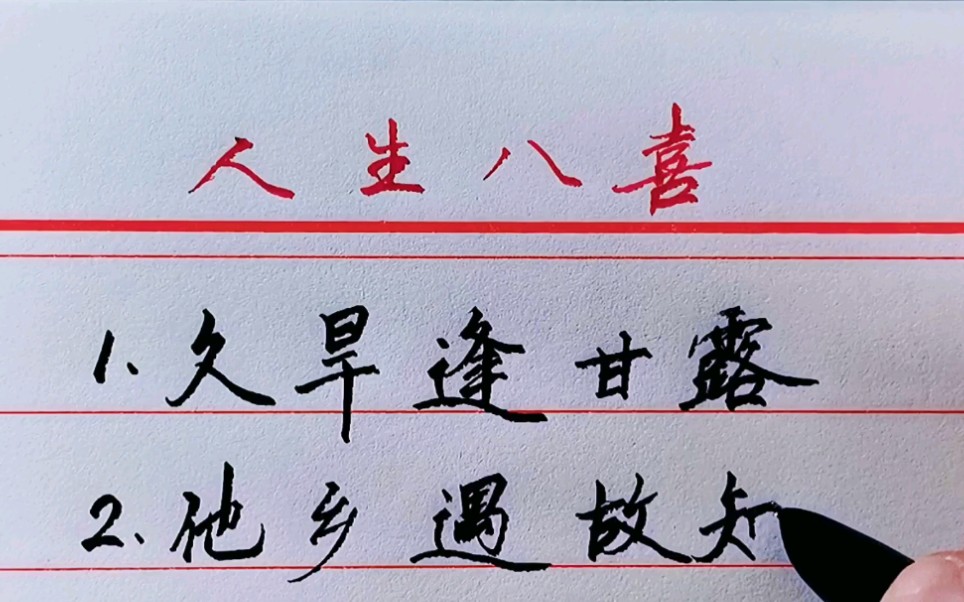 人生八喜
1.久旱逢甘露
2.他乡遇故知